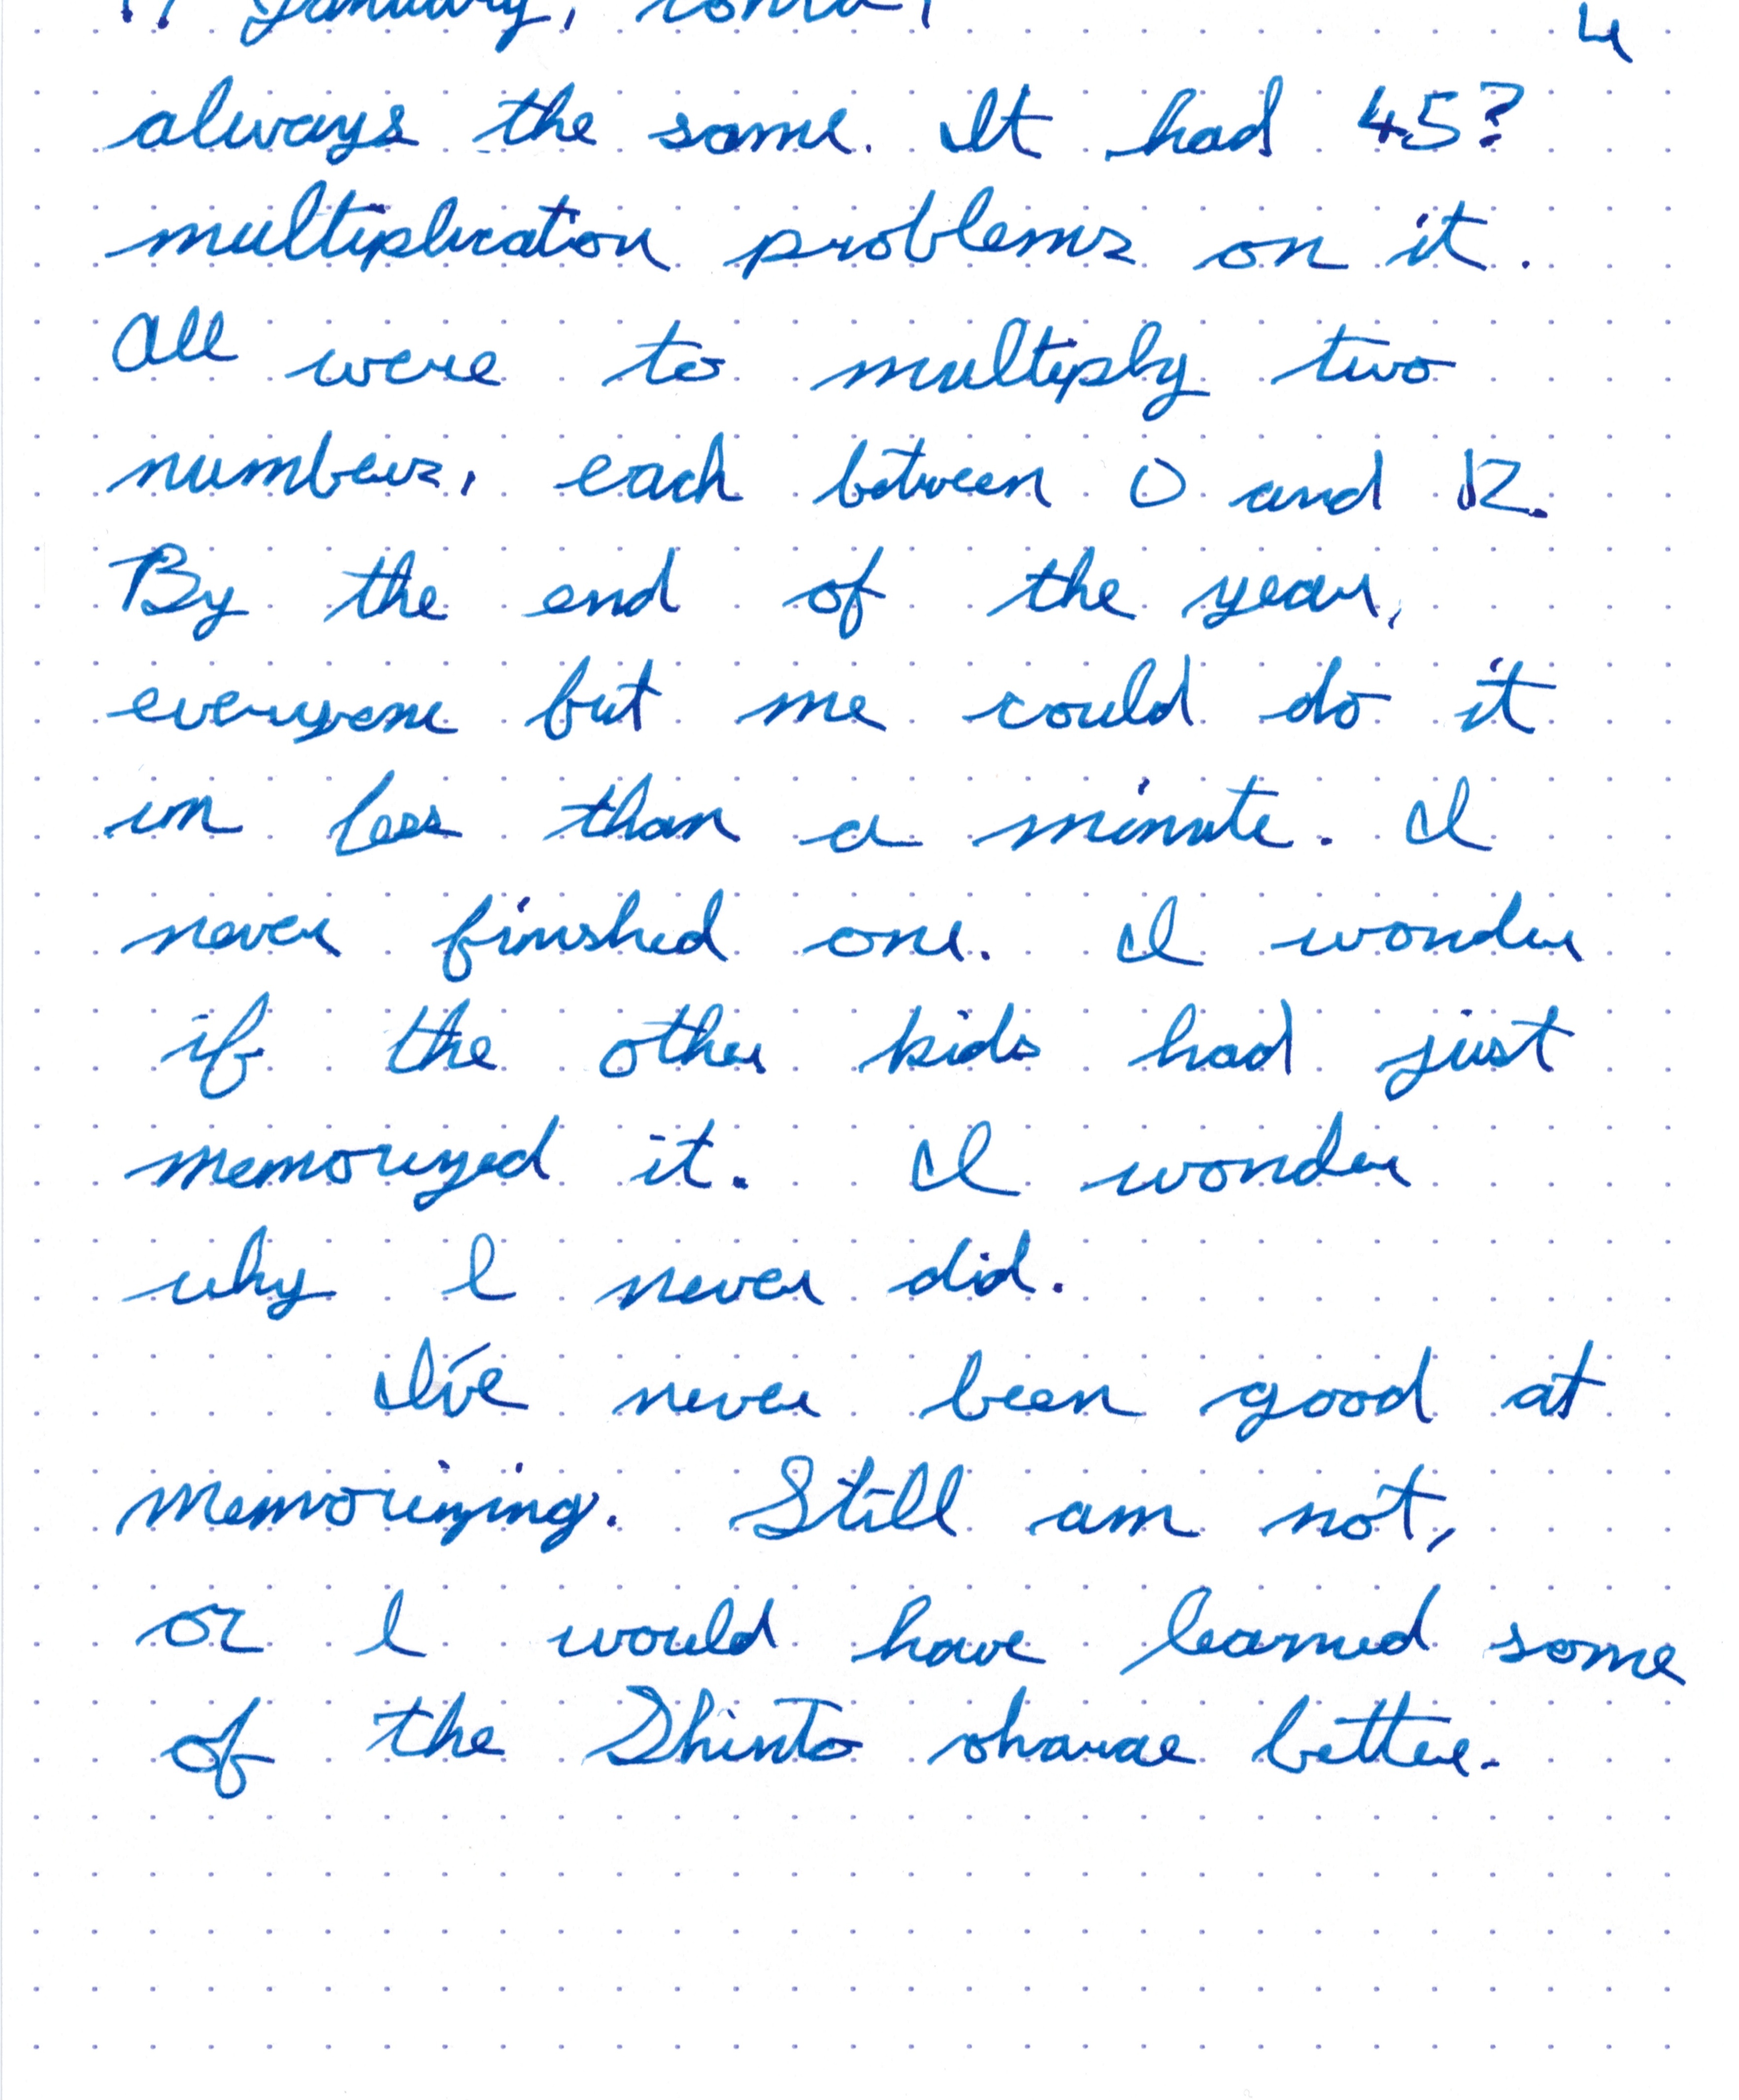 January, 4
always the same. It had 45?
multiplication problems on it.
All were to multiply two
numbers, each between 0 and 12.
By the end of the year,
everyone but me could do it
in less than a minute. I
never finished one. I wonder
if the other kids had just
memorized it. I wonder
why I never did.
I've never been good at
memorizing. Still am not,
or I would have learned some
of the Shinto better.